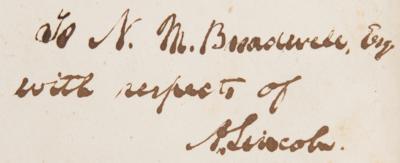 To N. M. Broadwell, Esq
with respects of
A. Lincoln.